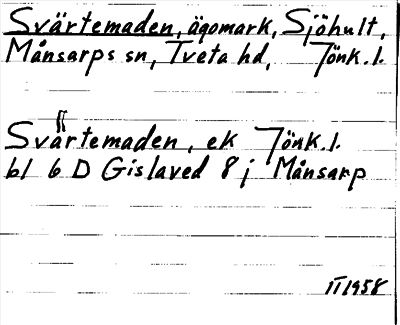 Svärtemaden, ägomark, Sjöhult,
Månsarps sn, Tveta hd, Jönk. l.
Svärtemaden, ek Jönk. l.
bl 6 D Gislaved 8 j Månsarp
II 1958